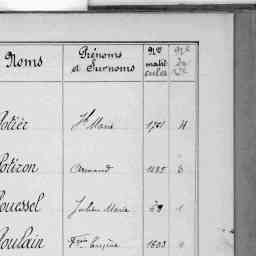 Noms Prénoms et Surnoms Nº matri culer
otier Jh Marie 1721 4
otiron Armand 1885 3
ouessel Julien Marie 59 1
oulain Fçois Eugène 1603